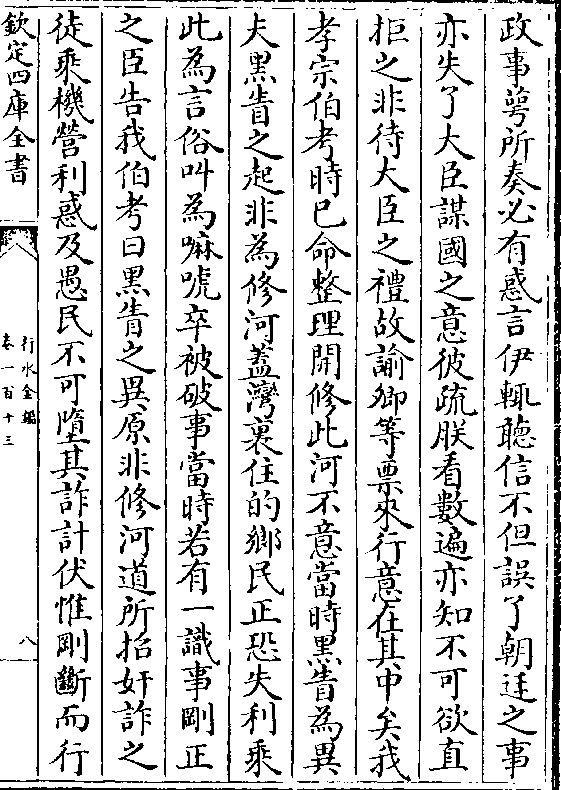 政事蕚所奏必有惑言伊輙聽信不但誤了朝廷之事
亦失了大臣謀國之意彼疏朕看數遍亦知不可欲直
拒之非待大臣之禮故諭卿等票來行意在其中矣我
孝宗伯考時已命整理開修此河不意當時黒眚為異
夫黒眚之起非為修河葢灣裏住的鄉民正恐失利乘
此為言俗叫為嘛唬卒被破事當時若有一識事剛正
之臣告我伯考曰黒眚之異原非修河道所招奸詐之
徒乘機營利惑及愚民不可墮其詐計伏惟剛斷而行
欽定四庫全書
行水金鑑
卷一百十三
八